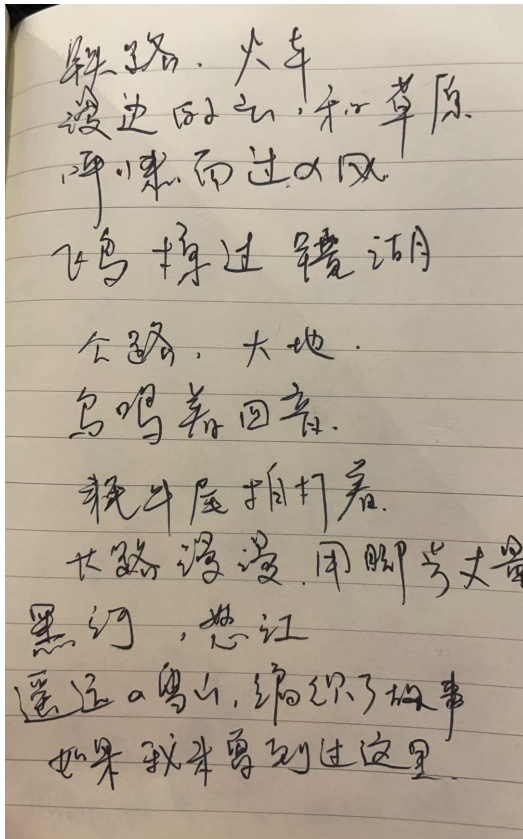 铁路、火车
漫边的云，和草原
呼啸而过的风
飞鸟掠过镜湖
公路、大地.
鸟鸣着回音.
牦牛尾拍打着.
长路漫漫.用脚步丈量
黑河，怒江
遥远的雪山，编织了故事
如果我未曾到过这里